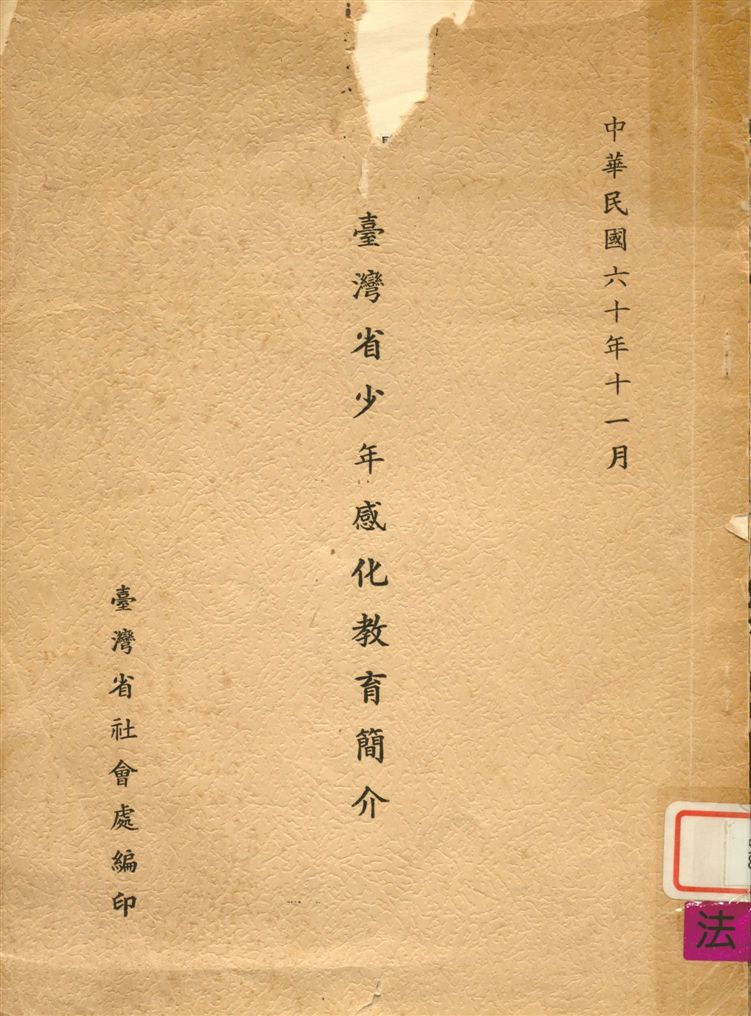 中華民國六十年十一月
臺灣省少年感化教育簡介
臺灣省社會處編印
法